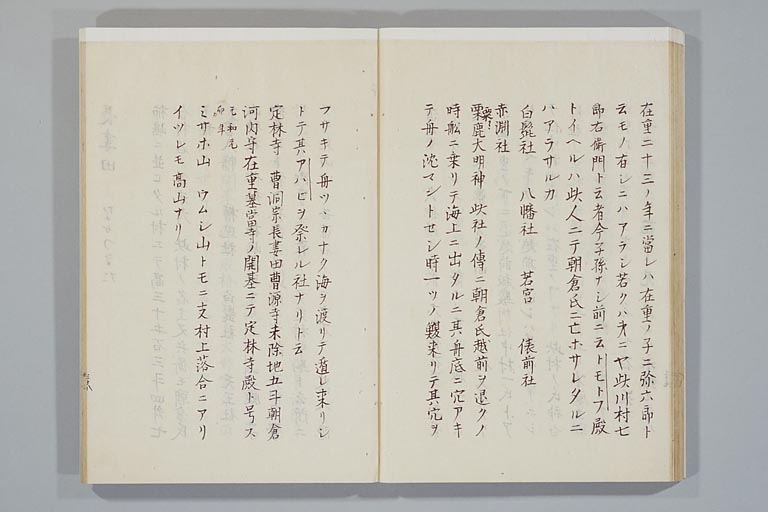 在重二十三ノ年ニ當レハ在重ノ子ニ弥六郎ト
云モノ有シニハアラシ若クハ弟ニヤ此川村七
郎右衛門ト云者今子孫ナシ前ニ云トモトフ殿
トイヘルハ此人ニテ朝倉氏ニ亡ホサレタルニ
ハアラサルカ
白髭社 八幡社 若宮 俵前社
赤淵社
粟鹿大明神 此社ノ傳ニ朝倉氏越前ヲ退クノ
時舩ニ乗リテ海上ニ出タルニ其舟底ニ穴アキ
テ舟ノ沈マントセシ時一ツノ鰒来リテ其穴ヲ
フサキテ舟ツヽカナク海ヲ渡リテ遁レ来リシ
トテ其アハビヲ祭レル社ナリト云
定林寺 曹洞宗長妻田曹源寺末除地五斗朝倉
河内守在重墓當寺ノ開基ニテ定林寺殿ト号ス
元和元
ミサホ山 ウムシ山トモニ支村上落合ニアリ
イツレモ高山ナリ